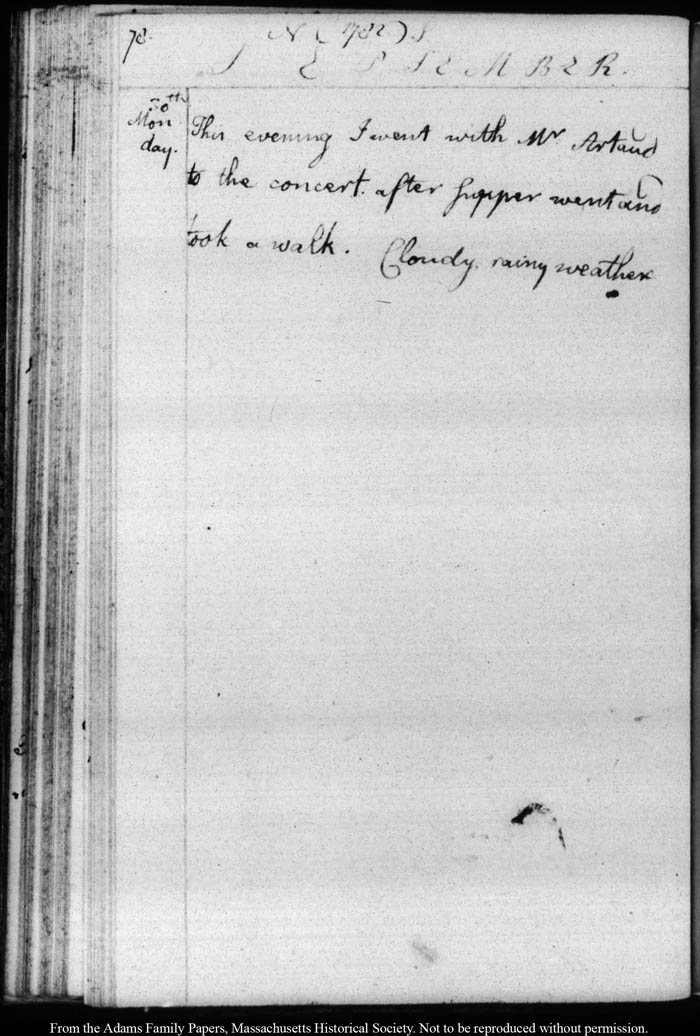 78.
N (1782) S
SEPTEMBER.
30th
Mon
day.
This evening I went with Mr Artaud
to the concert. after supper went and
took a walk. Cloudy, rainy weather
From the Adams Family Papers, Massachusetts Historical Society. Not to be reproduced without permission.